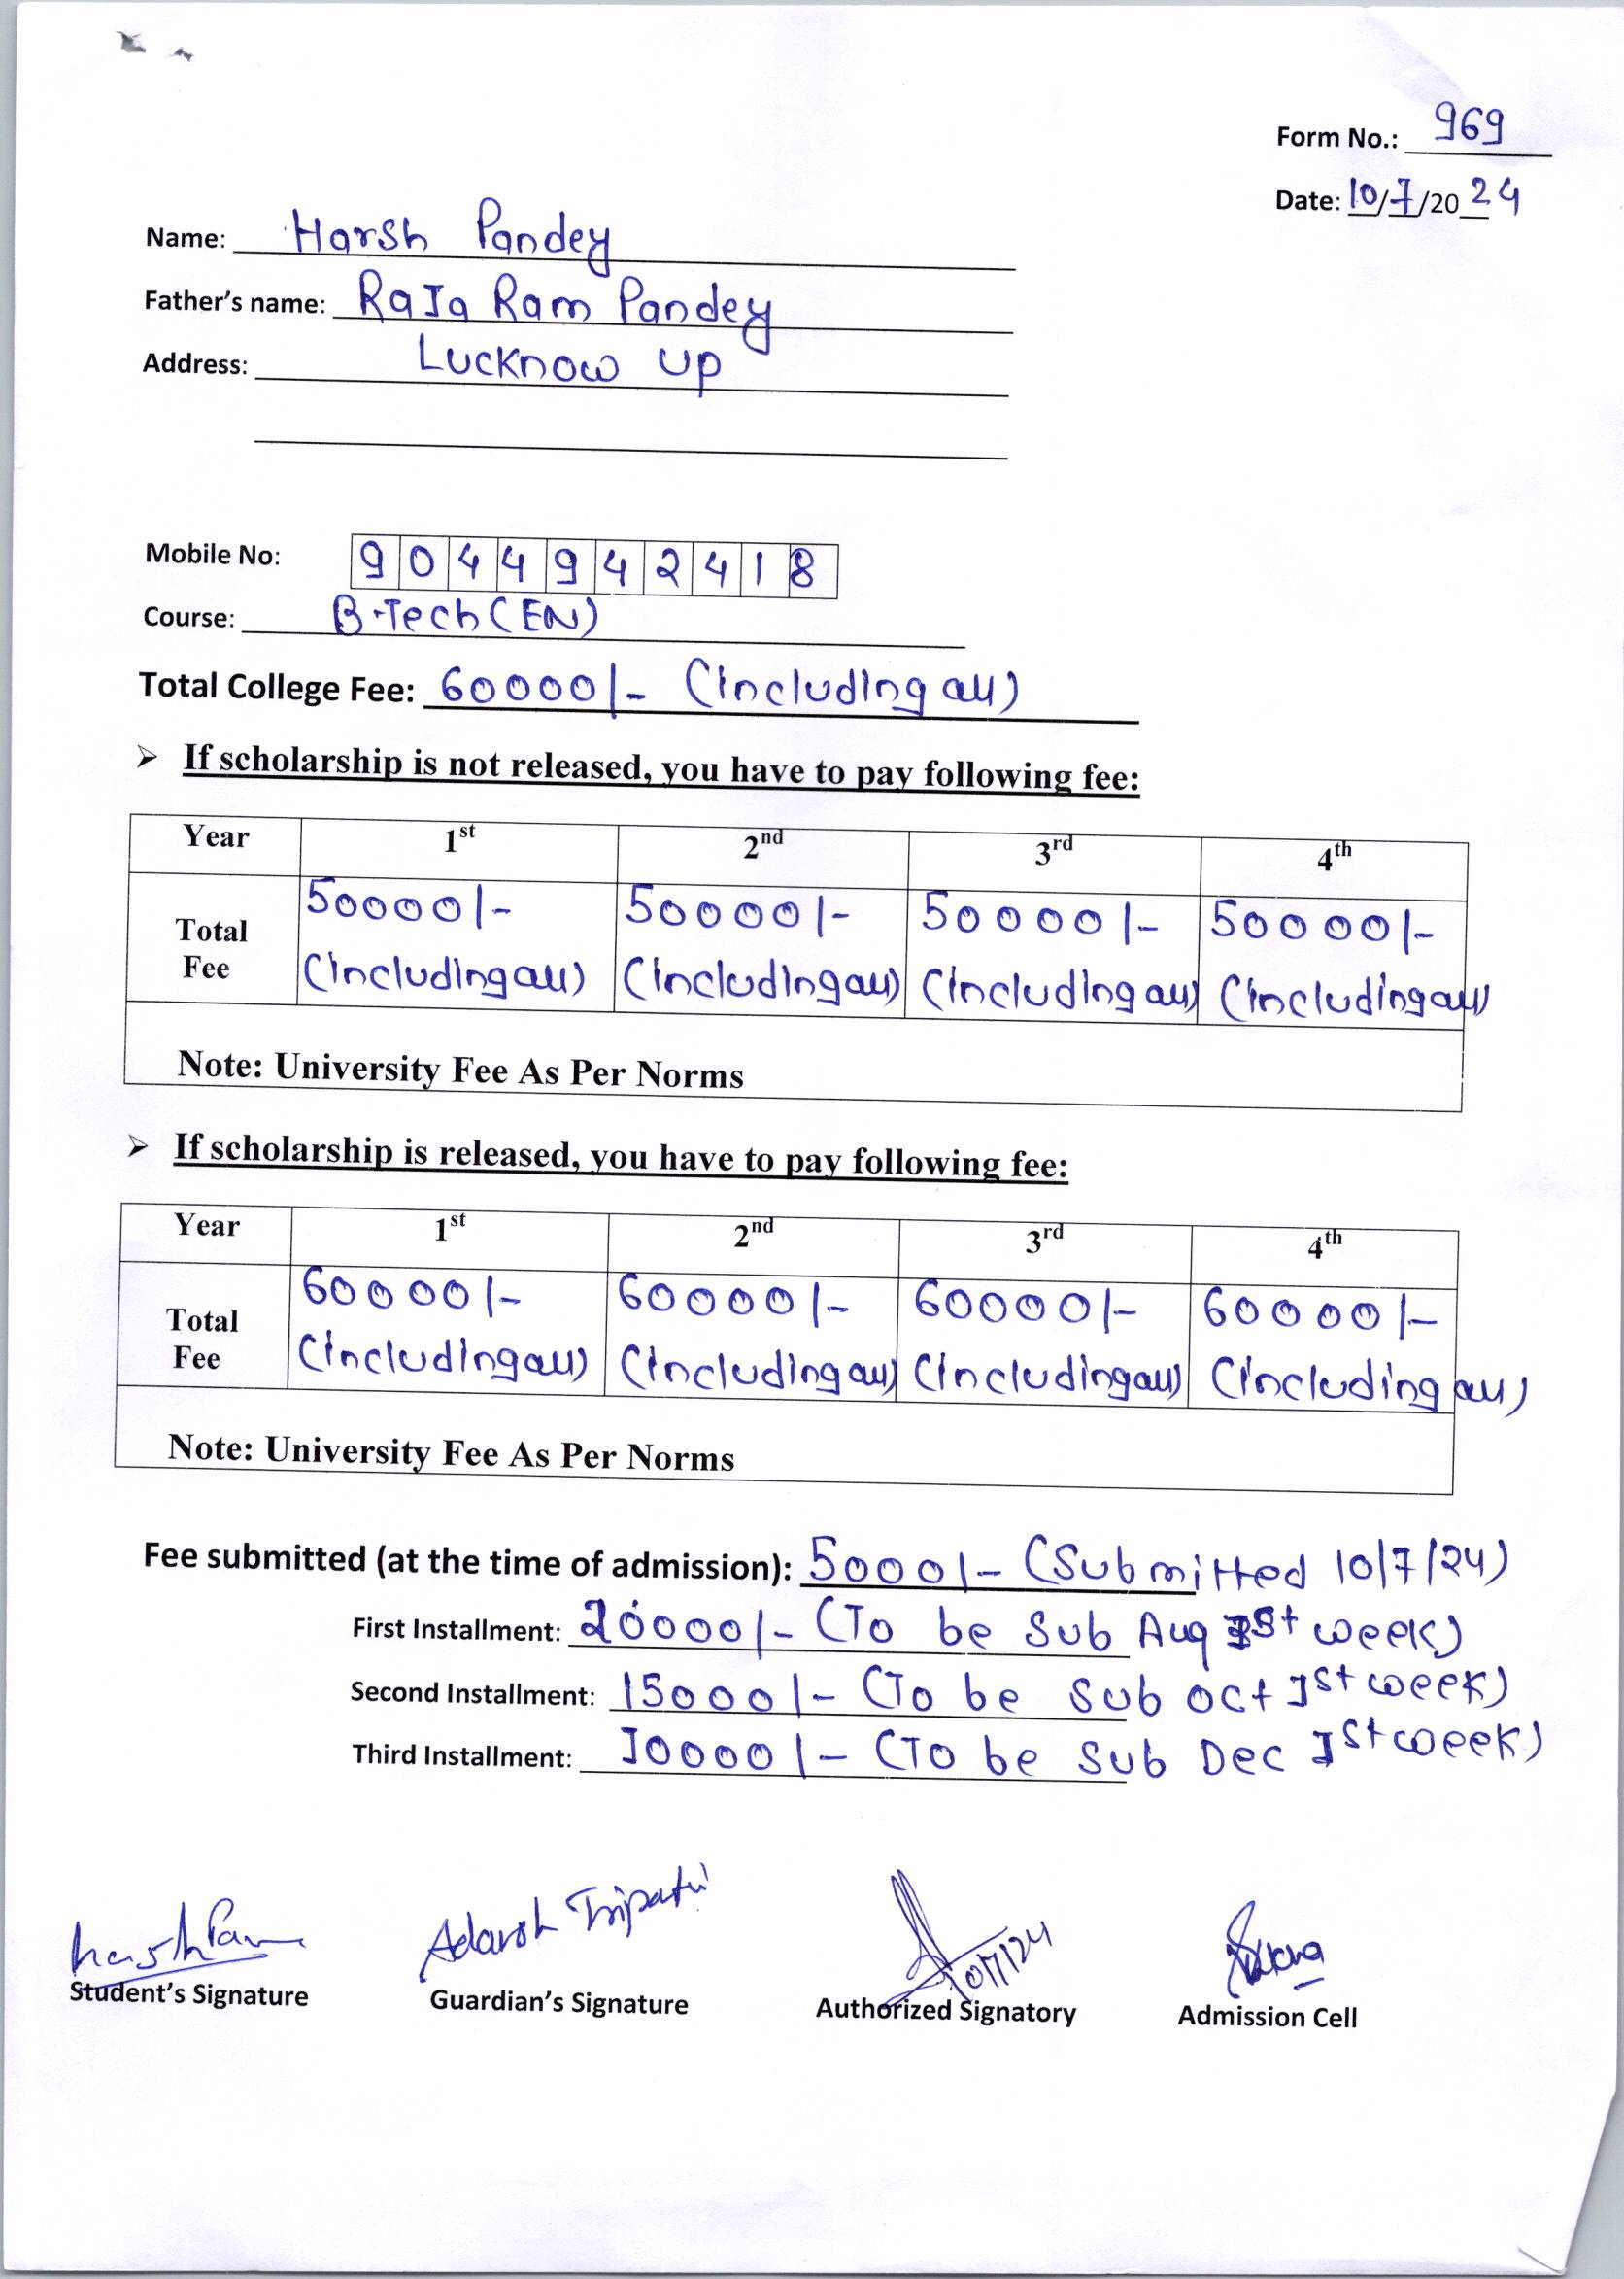 Form No.: 969
Date: 10/7/2024
Name: Harsh Pandey
Father's name: RaJa Ram Pandey
Address: Lucknow UP
Mobile No: 9044942418
Course: B-Tech (EN)
Total College Fee: 60000/- (including all)
➢ If scholarship is not released, you have to pay following fee:
Year 1st 2nd 3rd 4th
50000/- 50000/- 50000/- 50000/-
Total Fee
(including all) (including all) (including all) (including all)
Note: University Fee As Per Norms
➢ If scholarship is released, you have to pay following fee:
Year 1st 2nd 3rd 4th
60000/- 60000/- 60000/- 60000/-
Total Fee
(including all) (including all) (including all) (including all)
Note: University Fee As Per Norms
Fee submitted (at the time of admission): 5000/- (Submitted 10/7/24)
First Installment: 20000/- (To be Sub Aug 1st week)
Second Installment: 15000/- (To be Sub Oct 1st week)
Third Installment: 10000/- (To be Sub Dec 1st week)
Harsh Pan Adarsh Tripathi
Student's Signature Guardian's Signature Authorized Signatory Admission Cell